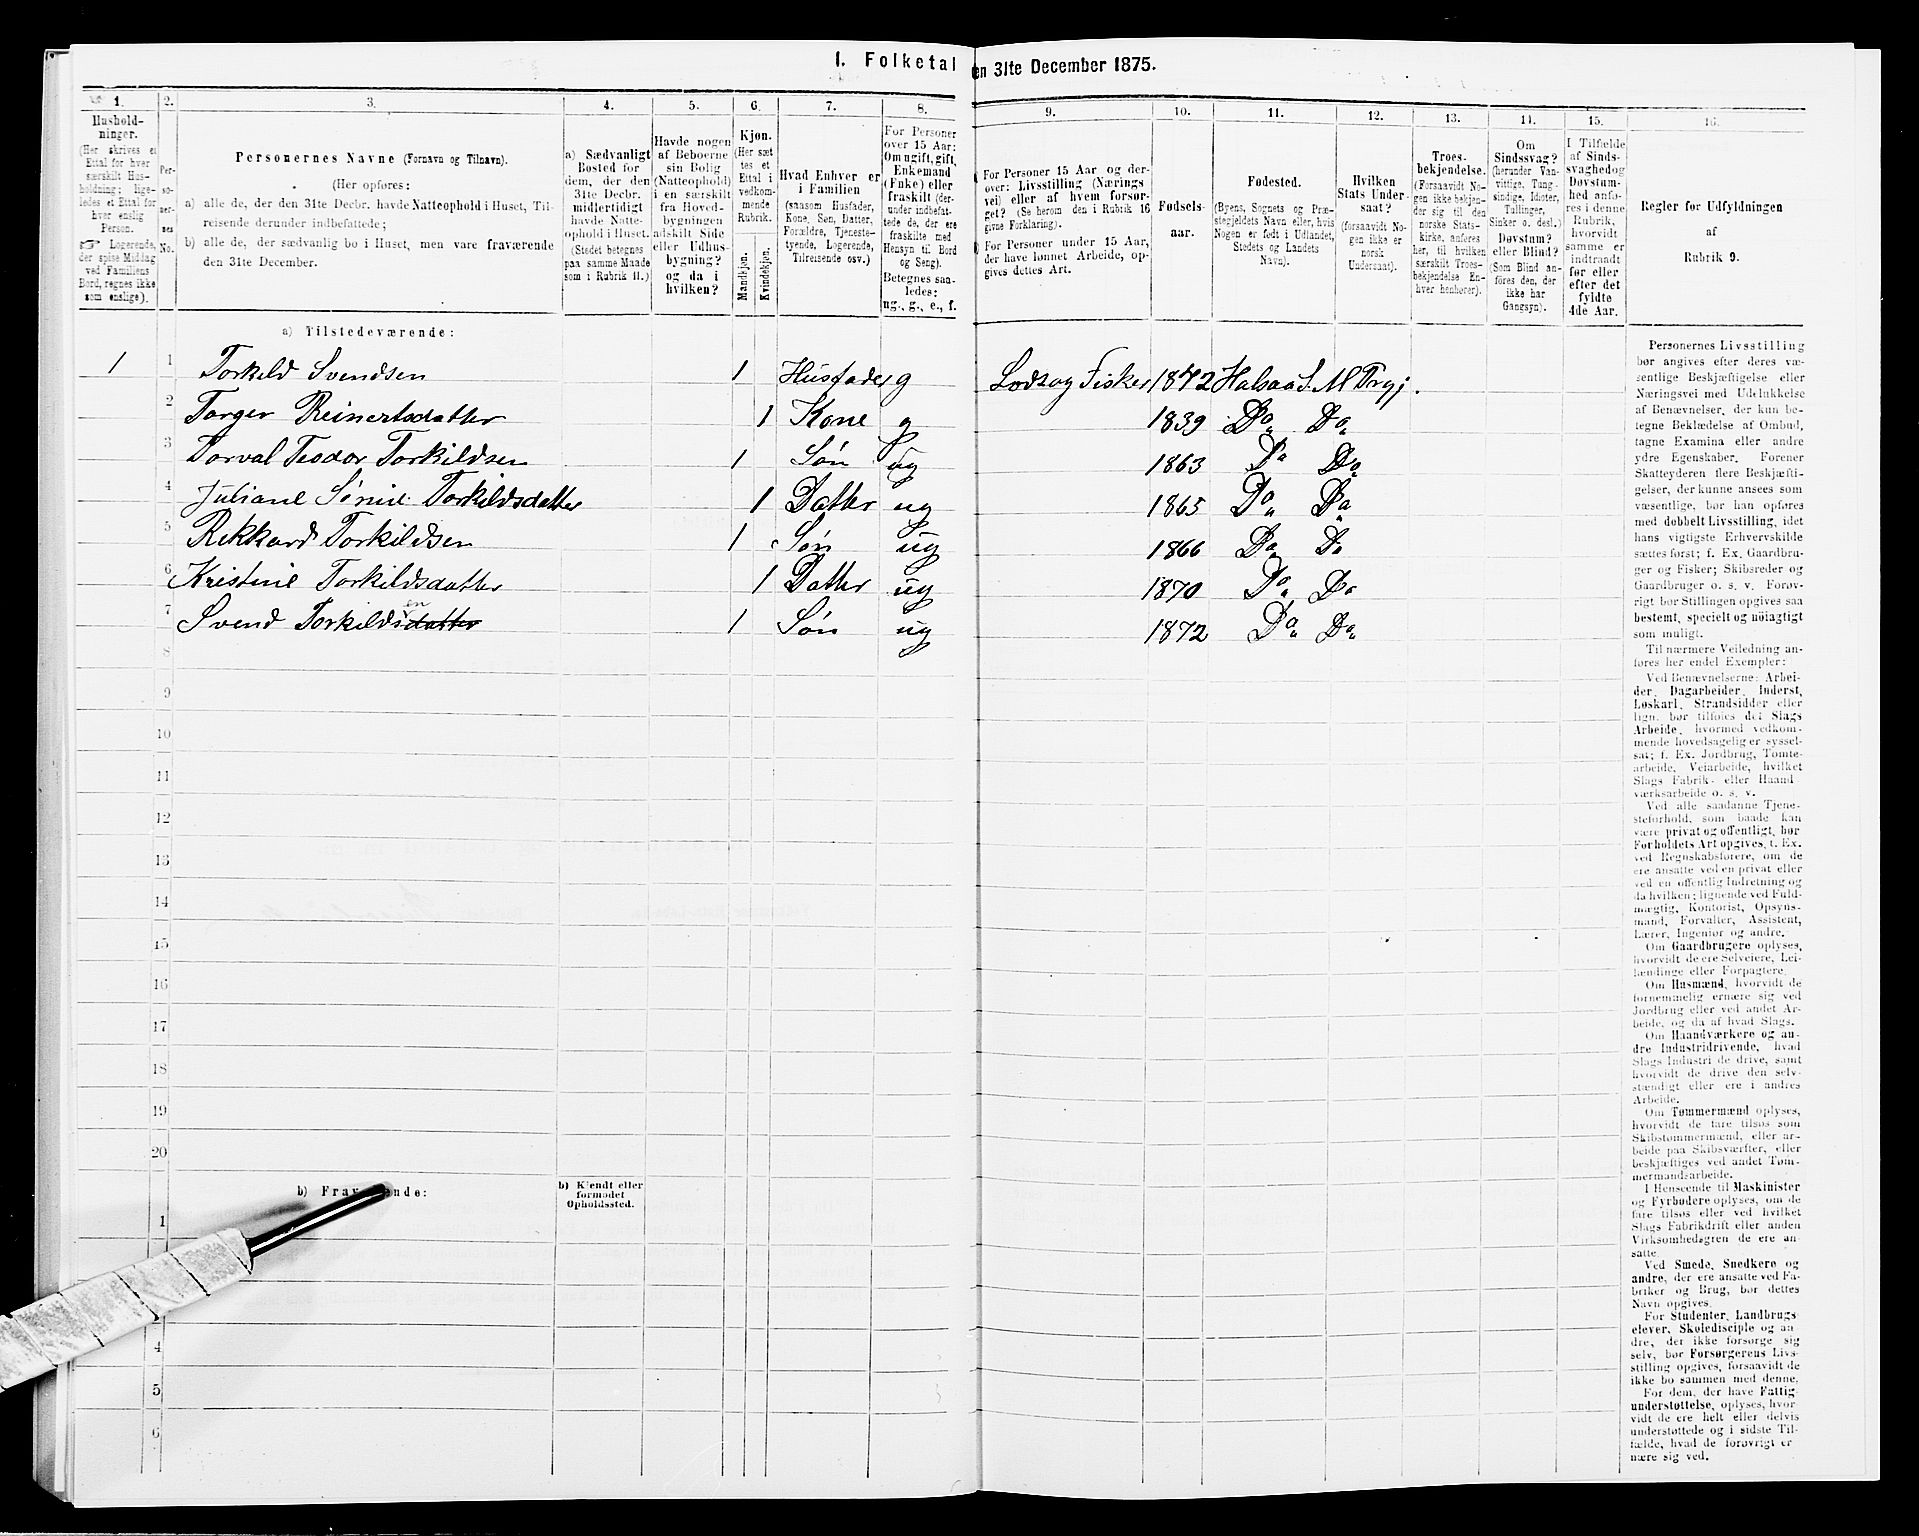 I. Folketal
en 31te December 1875.
1. 2. 3. 4. 5. 6. 7. 8. 9. 10. 11. 12. 13. 14. 15. 16.
Hushold-
ninger.
(Her skrives et
Ettal for hver
særskilt Hus-
holdning; lige-
ledes et Ettal for
hver enslig
Person.
☞ Logerende,
der spise Middag
ved Familiens
Bord, regnes ikke
som enslige).
Per-
so-
ner-
nes
No.
Personernes Navne (Fornavn og Tilnavn).
(Her opføres:
a) alle de, der den 31te Decbr. havde Natteophold i Huset, Til-
reisende derunder indbefattede;
b) alle de, der sædvanlig bo i Huset, men vare fraværende
den 31te December.
a) Sædvanligt
Bosted for
dem, der den
31te Decbr.
midlertidigt
havde Natte-
ophold i Huset.
(Stedet betegnes
paa samme Maade
som i Rubrik 11.)
Havde nogen
af Beboerne
sin Bolig
(Natteophold)
i en særskilt
fra Hoved-
bygningen
adskilt Side-
eller Udhus-
bygning?
og da i
hvilken?
Kjøn.
(Her sæt-
tes et
Ettal i
vedkom-
mende
Rubrik.
Mandkjøn.
Kvindekjøn.
Hvad Enhver er
i Familien
(saasom Husfader,
Kone, Søn, Datter,
Forældre, Tjeneste-
tyende, Logerende,
Tilreisende osv.)
For Personer
over 15 Aar:
Om ugift, gift,
Enkemand
(Enke) eller
fraskilt (der-
under indbefat-
tede de, der ere
fraskilte med
Hensyn til Bord
og Seng).
Betegnes saa-
ledes:
ug., g., e., f.
For Personer 15 Aar og der-
over: Livsstilling (Nærings-
vei) eller af hvem forsør-
get? (Se herom den i Rubrik 16
givne Forklaring).
For Personer under 15 Aar,
der have lønnet Arbeide, op-
gives dettes Art.
Fødsels-
aar.
Fødested.
(Byens, Sognets og Præ-
stegjeldets Navn eller, hvis
Nogen er født i Udlandet,
Stedets og Landets
Navn).
Hvilken
Stats Under-
saat?
(forsaavidt No-
gen ikke er
norsk
Undersaat).
Troes-
bekjendelse.
(Forsaavidt No-
gen ikke bekjen-
der sig til den
norske Stats-
kirke, anføres
her, til hvilken
særskilt Troes-
bekjendelse En-
hver henhører).
Om
Sindssvag?
(herunder Van-
vittige, Tung-
sindige, Idioter,
Tullinger,
Sinker o. desl.)
Døvstum?
eller Blind?
(Som Blind an-
føres den, der
ikke har
Gangsyn).
I Tilfælde
af Sinds-
svaghed og
Døvstum-
hed anfø-
res i denne
Rubrik,
hvorvidt
samme er
indtraadt
før eller
efter det
fyldte
4de Aar.
Regler for Udfyldningen
af
Rubrik 9.
a) Tilstedeværende:
1 1 Torkild Svendsen 1 Husfader g Lods og Fisker 1842 Halsaa S. M Prgj.
2 Torger Reinertsdatter 1 Kone g 1839 Do Do
3 Torval Teodor Torkildsen 1 Søn ug 1863 Do Do
4 Juliane Sørine Torkildsdatter 1 Datter ug 1865 Do Do
5 Rikkard Torkildsen 1 Søn ug 1866 Do Do
6 Kristine Torkildsdatter 1 Datter ug 1870 Do Do
7 Svend Torkildsdatter en 1 Søn ug 1872 Do Do
8
9
10
11
12
13
14
15
16
17
18
19
20
b) Frav ende:
b) Kjendt eller
formodet
Opholdssted.
1
4
5
6
Personernes Livsstilling
bør angives efter deres væ-
sentlige Beskjæftigelse eller
Næringsvei med Udelukkelse
af Benævnelser, der kun be-
tegne Beklædelse af Ombud,
tagne Examina eller andre
ydre Egenskaber. Forener
Skatteyderen flere Beskjæfti-
gelser, der kunne ansees som
væsentlige, bør han opføres
med dobbelt Livsstilling, idet
hans vigtigste Erhvervskilde
sættes først; f. Ex. Gaardbru-
ger og Fisker; Skibsreder og
Gaardbruger o. s. v. Forøv-
rigt bør Stillingen opgives saa
bestemt, specielt og nøiagtigt
som muligt.
Til nærmere Veiledning an-
føres her endel Exempler:
Ved Benævnelserne: Arbei-
der, Dagarbeider, Inderst,
Løskarl, Strandsidder eller
lign. bør tilføies det Slags
Arbeide, hvormed vedkom-
mende hovedsagelig er syssel-
sat; f. Ex. Jordbrug, Tomte-
arbeide, Veiarbeide, hvilket
Slags Fabrik- eller Haand-
værksarbeide o. s. v.
Ved alle saadanne Tjene-
steforhold, som baade kan
være privat og offentligt, bør
Forholdets Art opgives, f. Ex.
ved Regnskabsførere, om de
ere ansatte ved en privat eller
ved en offentlig Indretning og
da hvilken; lignende ved Fuld-
mægtig, Kontorist, Opsyns-
mand, Forvalter, Assistent,
Lærer, Ingeniør og andre.
Om Gaardbrugere oplyses,
hvorvidt de ere Selveiere, Lei-
lændinge eller Forpagtere.
Om Husmænd, hvorvidt de
fornemmelig ernære sig ved
Jordbrug eller ved andet Ar-
beide, og da af hvad Slags.
Om Haandværkere og an-
dre Industridrivende, hvad
Slags Industri de drive, samt
hvorvidt de drive den selv-
stændigt eller ere i andres
Arbeide.
Om Tømmermænd oplyses,
hvorvidt de fare tilsøs som
Skibstømmermænd, eller ar-
beide paa Skibsværfter, eller
beskjæftiges ved andet Tøm-
mermandsarbeide.
I Henseende til Maskinister
og Fyrbødere oplyses, om de
fare tilsøs eller ved hvilket
Slags Fabrikdrift eller anden
Virksomhedsgren de ere an-
satte.
Ved Smede, Snedkere og
andre, der ere ansatte ved Fa-
briker og Brug, bør dettes
Navn opgives.
For Studenter, Landbrugs-
elever, Skoledisciple og an-
dre, der ikke forsørge sig
selv, bør Forsørgerens Livs-
stilling opgives, forsaavidt de
ikke bo sammen med denne.
For dem, der have Fattig-
understøttelse, oplyses, hvor-
vidt de ere helt eller delvis
understøttede og i sidste Til-
fælde, hvad de forøvrigt er-
nære sig ved.